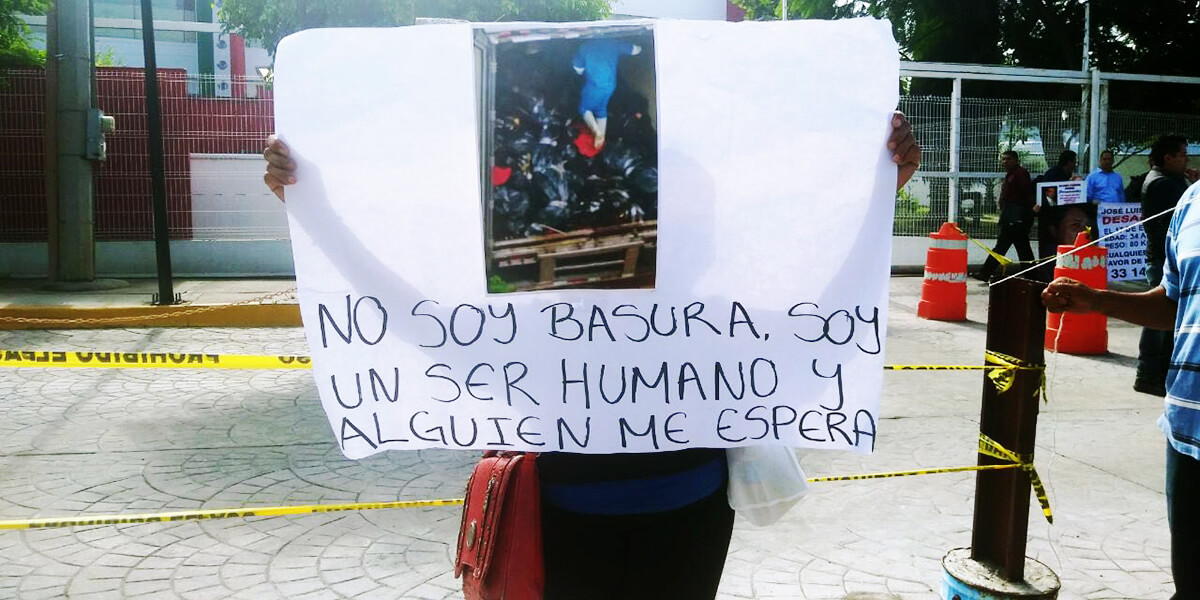 NO SOY BASURA, SOY
UN SER HUMANO Y
ALGUIEN ME ESPERA
PROHIBIDO EL PAS
JOSÉ LUI
DESA
EDAD: 34 A
PESO: 80 K
CUALQUIE
33 14